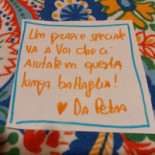 Un pensiero speciale
va a Voi che ci
aiutate in questa
lunga battaglia!
♥ Da Petra